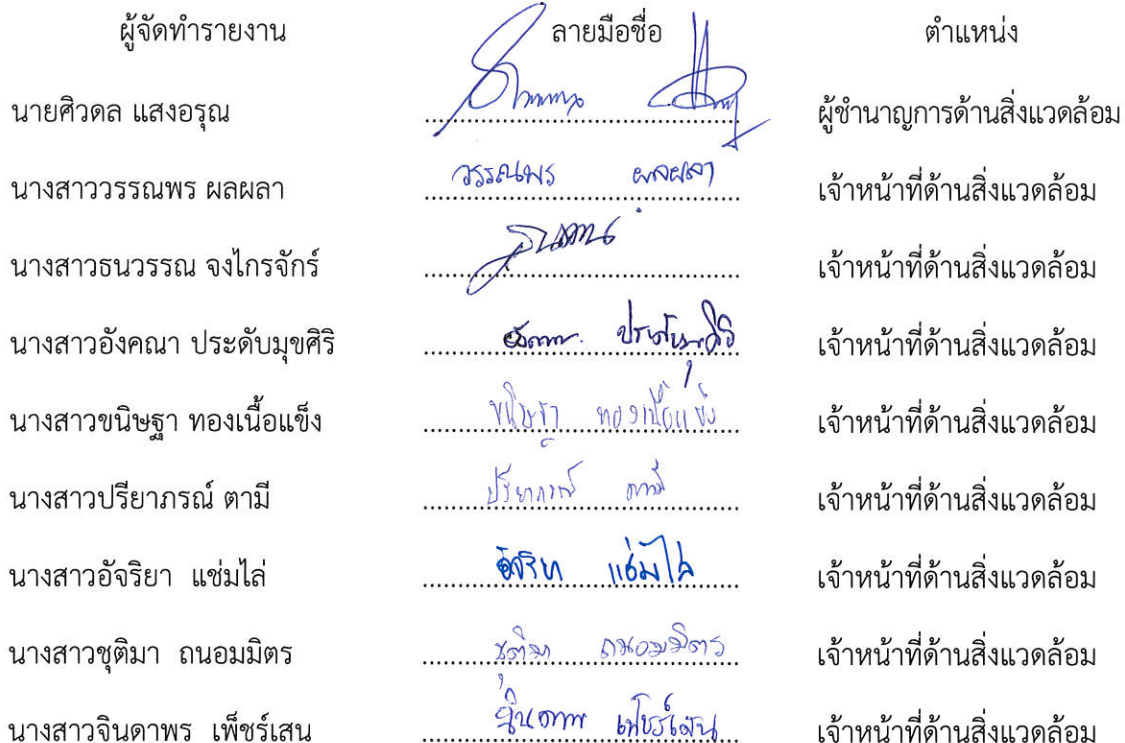 ผู้จัดทำรายงาน ลายมือชื่อ ตำแหน่ง
นายศิวดล แสงอรุณ ผู้ชำนาญการด้านสิ่งแวดล้อม
นางสาววรรณพร ผลผลา วรรณพร ผลผลา เจ้าหน้าที่ด้านสิ่งแวดล้อม
นางสาวธนวรรณ จงไกรจักร์ เจ้าหน้าที่ด้านสิ่งแวดล้อม
นางสาวอังคณา ประดับมุขศิริ ประดับมุขศิริ เจ้าหน้าที่ด้านสิ่งแวดล้อม
นางสาวขนิษฐา ทองเนื้อแข็ง ขนิษฐา ทองเนื้อแข็ง เจ้าหน้าที่ด้านสิ่งแวดล้อม
นางสาวปรียาภรณ์ ตามี ปรียาภรณ์ ตามี เจ้าหน้าที่ด้านสิ่งแวดล้อม
นางสาวอัจริยา แซ่มไล่ อัจริยา แซ่มไล่ เจ้าหน้าที่ด้านสิ่งแวดล้อม
นางสาวชุติมา ถนอมมิตร ชุติมา ถนอมมิตร เจ้าหน้าที่ด้านสิ่งแวดล้อม
นางสาวจินดาพร เพ็ชร์เสน จินดาพร เพ็ชร์เสน เจ้าหน้าที่ด้านสิ่งแวดล้อม